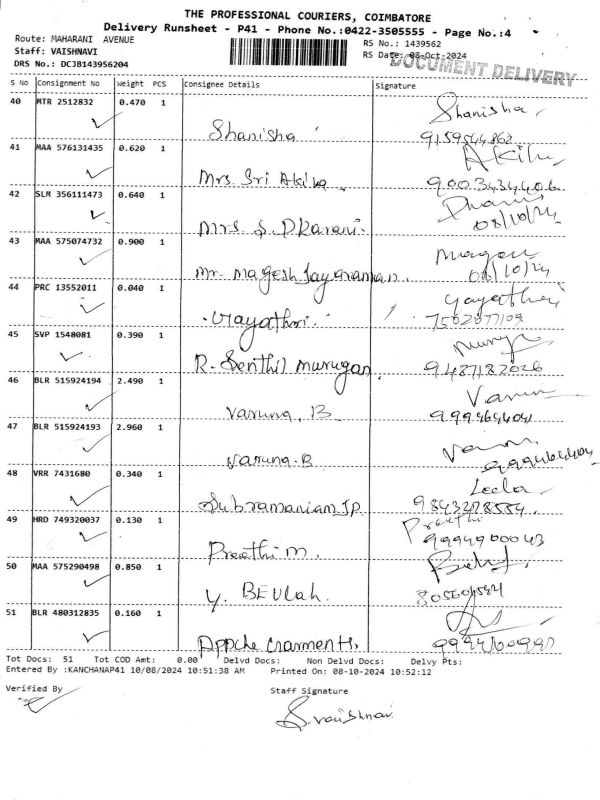 THE PROFESSIONAL COURIERS, COIMBATORE
Delivery Runsheet - P41 - Phone No.:0422-3505555 - Page No.:4
Route: MAHARANI AVENUE
RS No.: 1439562
Staff: VAISHNAVI
RS Date: 08-Oct-2024
DOCUMENT DELIVERY
DRS No.: DCJB143956204
S No Consignment No Weight PCS Consignee Details Signature
40 MTR 2512832 0.470 1 Shanisha Shanisha
41 MAA 576131435 0.620 1 Mrs. Sri Akila 9003434406
42 SLM 356111473 0.640 1 Mrs S. Dharani 08/10/24
43 MAA 575074732 0.900 1 Mr. Magesh Jayaraman. 08/10/24
44 PRC 13552011 0.040 1 Gayathri. Gayathri
45 SVP 1548081 0.390 1 R. Senthil Murugan. 9487182026
46 BLR 515924194 2.490 1 Varuna. B Varun
47 BLR 515924193 2.960 1 Varuna. B 9994644041
48 VRR 7431680 0.340 1 Subramaniam J.P. Leela
49 HRD 749320037 0.130 1 Preethi M. Preethi 9994900043
50 MAA 575290498 0.850 1 Y. BEULah.
51 BLR 480312835 0.160 1
Tot Docs: 51 Tot COD Amt: 0.00 Delvd Docs: Non Delvd Docs: Delvy Pts:
Entered By :KANCHANAP41 10/08/2024 10:51:38 AM Printed On: 08-10-2024 10:52:12
Verified By
Staff Signature
S. Vaishnavi